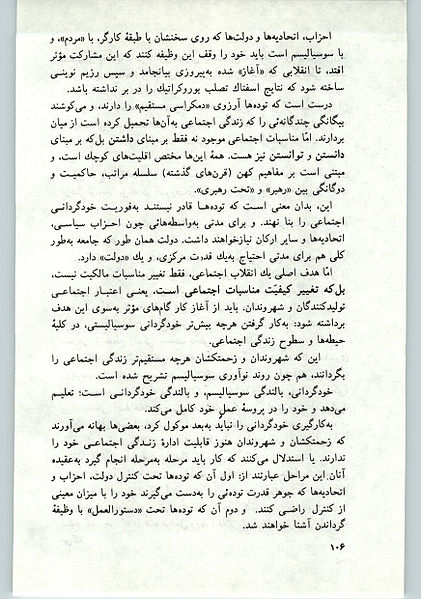 احزاب، اتحادیه‌ها و دولت‌ها که روی سخنشان با طبقهٔ کارگر، با «مردم»، و
با سوسیالیسم است باید خود را وقف این وظیفه کنند که این مشارکت مؤثر
افتد، تا انقلابی که «آغاز» شده به‌پیروزی بیانجامد و سپس رژیم نوینی
ساخته شود که نتایج اسفناك تصلب بوروکراتیك را در بر نداشته باشد.
درست است که توده‌ها آرزوی «دمکراسی مستقیم» را دارند، و می‌کوشند
بیگانگی چندگانه‌ئی را که زندگی اجتماعی به‌آن‌ها تحمیل کرده است از میان
بردارند. امّا مناسبات اجتماعی موجود نه فقط بر مبنای داشتن بل‌که بر مبنای
دانستن و توانستن نیز هست. همهٔ این‌ها مختص اقلیت‌های کوچك است، و
مبتنی است بر مفاهیم کهن (قرن‌های گذشته) سلسله مراتب، حاکمیت و
دوگانگی بین «رهبر» و «تحت رهبری».
این، بدان معنی است که توده‌ها قادر نیستند به‌فوریت خودگردانی
اجتماعی را بنا نهند. و برای مدتی به‌واسطه‌هائی چون احزاب سیاسی،
اتحادیه‌ها و سایر ارکان نیازخواهند داشت. دولت همان طور که جامعه به‌طور
کلی هم برای مدتی احتیاج به‌یك قدرت مرکزی، و یك «دولت» دارد.
امّا هدف اصلی یك انقلاب اجتماعی، فقط تغییر مناسبات مالکیت نیست،
بل‌که تغییر کیفیّت مناسبات اجتماعی است، یعنی اعتبار اجتماعی
تولیدکنندگان و شهروندان. باید از آغاز کار گام‌های مؤثر به‌سوی این هدف
برداشته شود: به‌کار گرفتن هرچه بیش‌تر خودگردانی سوسیالیستی، در کلیهٔ
حیطه‌ها و سطوح زندگی اجتماعی.
این که شهروندان و زحمتکشان هرچه مستقیم‌تر زندگی اجتماعی را
بگردانند، هم چون روند نوآوری سوسیالیسم تشریح شده است.
خودگردانی، بالندگی سوسیالیسم، و بالندگی خودگردانی است؛ تعلیم
می‌دهد و خود را در پروسهٔ عمل خود کامل می‌کند.
به‌کارگیری خودگردانی را نباید به‌بعد موکول کرد، بعضی‌ها بهانه می‌آورند
که زحمتکشان و شهروندان هنوز قابلیت ادارهٔ زندگی اجتماعی خود را
ندارند. یا استدلال می‌کنند که کار باید مرحله به‌مرحله انجام گیرد به‌عقیده
آنان این مراحل عبارتند از: اول آن که توده‌ها تحت کنترل دولت، احزاب و
اتحادیه‌ها که جوهر قدرت توده‌ئی را به‌دست می‌گیرند خود را با میزان معینی
از کنترل راضی کنند. و دوم آن که توده‌ها تحت «دستورالعمل» با وظیفهٔ
گرداندن آشنا خواهند شد.
۱۰۶